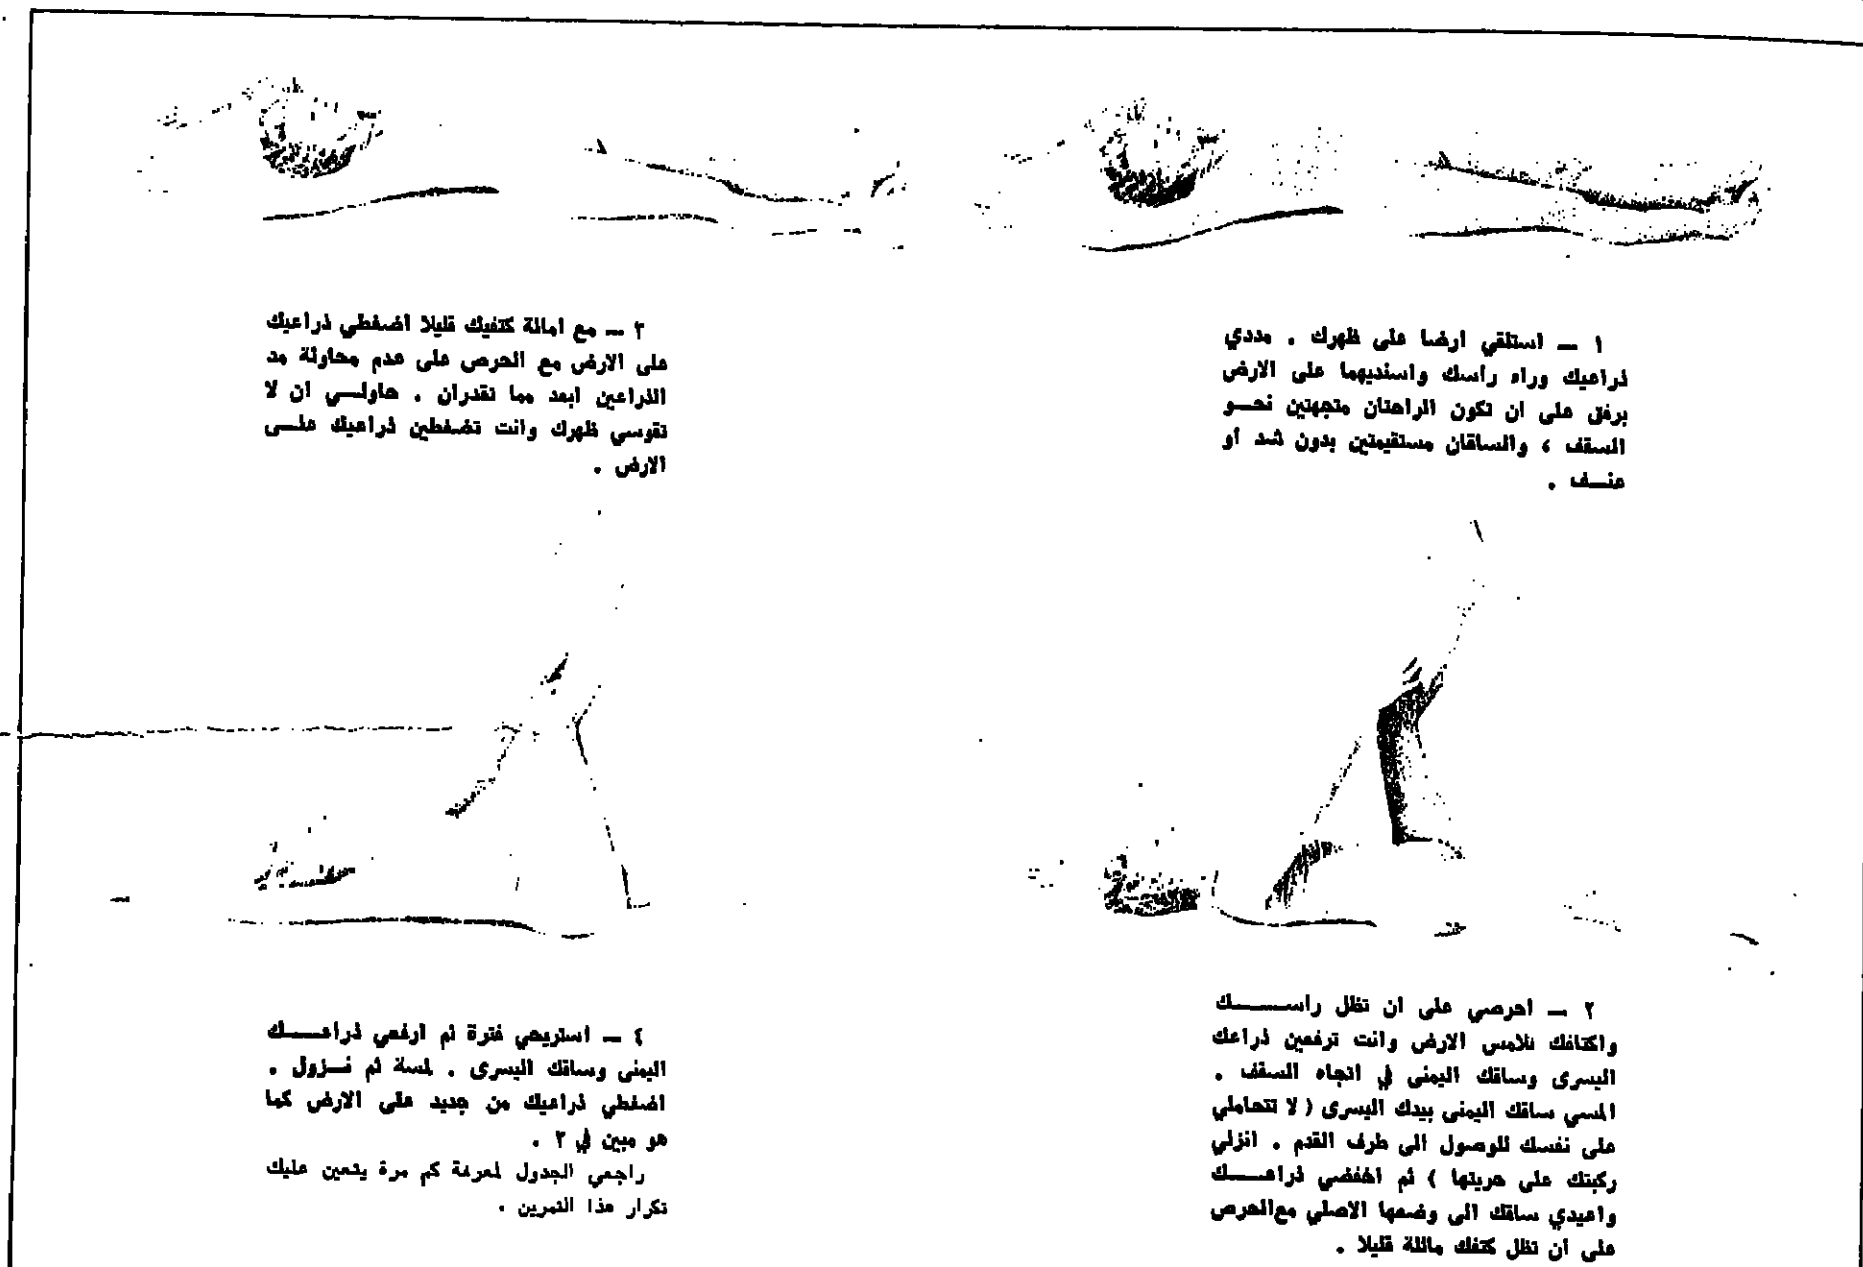 ١ — استلقي ارضا على ظهرك . مددي
ذراعيك وراء راسك واسنديهما على الارض
برفق على ان تكون الراحتان متجهتين نحــو
السقف ، والساقان مستقيمتين بدون شد أو
عنــف .
٢ — احرصي على ان تظل راســـــك
واكتافك تلامس الارض وانت ترفعين ذراعك
اليسرى وساقك اليمنى في اتجاه السقف .
المسي ساقك اليمنى بيدك اليسرى ( لا تتحاملي
على نفسك للوصول الى طرف القدم . انزلي
ركبتك على حريتها ) ثم اخفضي ذراعــــك
واعيدي ساقك الى وضعها الاصلي مع الحرص
على ان تظل كتفك مائلة قليلا .
٣ — مع امالة كتفيك قليلا اضغطي ذراعيك
على الارض مع الحرص على عدم محاولة مد
الذراعين ابعد مما تقدران . حاولــي ان لا
تقوسي ظهرك وانت تضغطين ذراعيك علــى
الارض .
٤ — استريحي فترة ثم ارفعي ذراعــــك
اليمنى وساقك اليسرى . لمسة ثم نــزول .
اضغطي ذراعيك من جديد على الارض كما
هو مبين في ٣ .
راجعي الجدول لمعرفة كم مرة يتعين عليك
تكرار هذا التمرين .